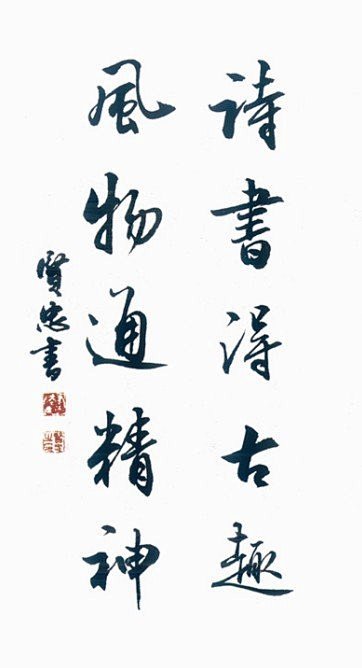 詩書得古趣
風物通精神
賢忠書